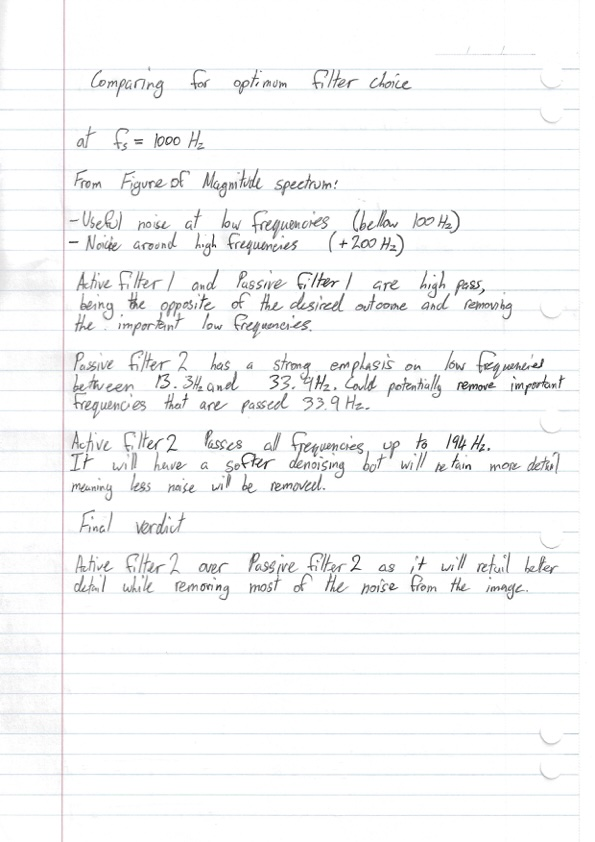 Comparing for optimum filter choice
at fs = 1000 Hz
From Figure of Magnitude spectrum:
- Useful noise at low frequencies (bellow 100 Hz)
- Noise around high frequencies (+200 Hz)
Active filter 1 and Passive filter 1 are high pass,
being the opposite of the desired outcome and removing
the important low frequencies.
Passive filter 2 has a strong emphasis on low frequencies
between 13.3Hz and 33.9Hz. Could potentially remove important
frequencies that are passed 33.9 Hz.
Active filter 2 Passes all frequencies up to 194 Hz.
It will have a softer denoising but will retain more detail
meaning less noise will be removed.
Final verdict
Active filter 2 over Passive filter 2 as it will retail better
detail while removing most of the noise from the image.